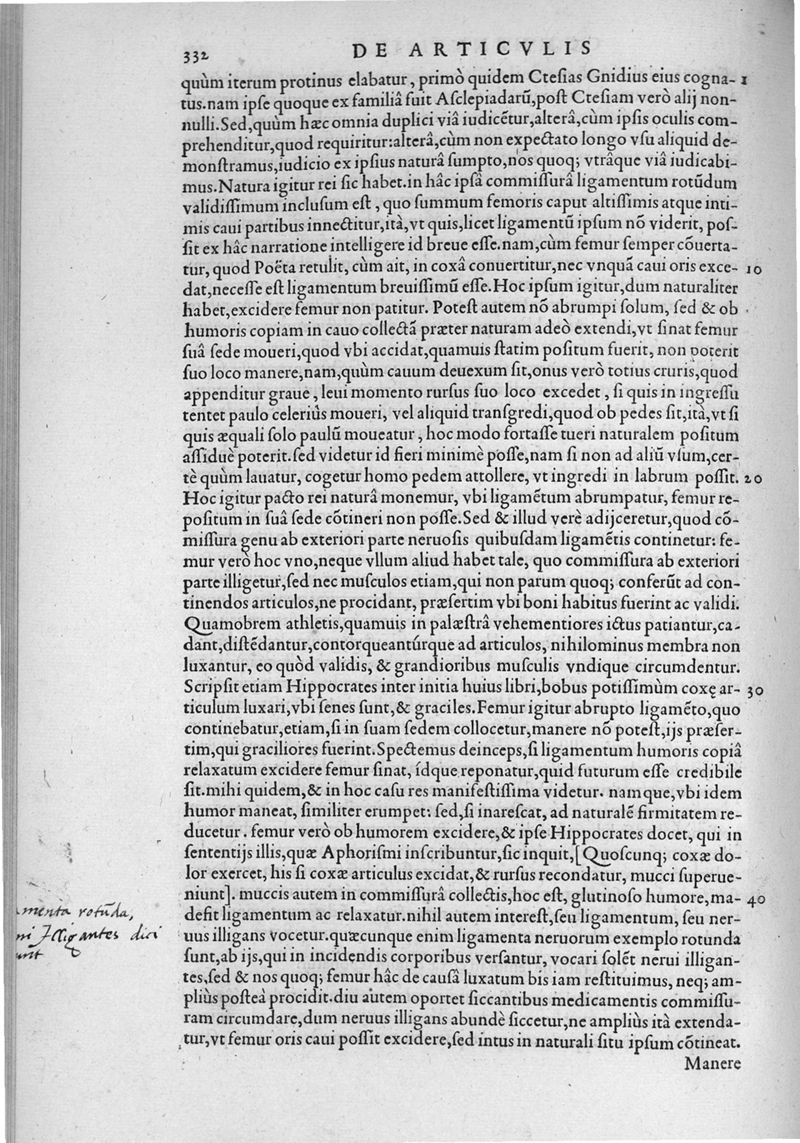 332
DE ARTICVLIS
quùm iterum protinus elabatur, primò quidem Ctesias Gnidius eius cogna- 1
tus.nam ipse quoque ex familiâ fuit Asclepiadarū,post Ctesiam verò alij non-
nulli.Sed,quùm hæc omnia duplici viâ iudicētur,alterâ,cùm ipsis oculis com-
prehenditur,quod requiritur:alterâ,cùm non expectato longo vsu aliquid de-
monstramus,iudicio ex ipsius naturâ sumpto,nos quoq; vtrâque viâ iudicabi-
mus.Natura igitur rei sic habet.in hâc ipsâ commissurâ ligamentum rotūdum
validissimum inclusum est, quo summum femoris caput altissimis atque inti-
mis caui partibus innectitur,ità,vt quis,licet ligamentū ipsum nō viderit, pos-
sit ex hâc narratione intelligere id breue esse.nam,cùm femur semper cōuerta-
tur, quod Poëta retulit, cùm ait, in coxâ conuertitur,nec vnquā caui oris exce- 10
dat,necesse est ligamentum breuissimū esse.Hoc ipsum igitur,dum naturaliter
habet,excidere femur non patitur. Potest autem nō abrumpi solum, sed & ob
humoris copiam in cauo collectā præter naturam adeò extendi,vt sinat femur
suâ sede moueri,quod vbi accidat,quamuis statim positum fuerit, non poterit
suo loco manere,nam,quùm cauum deuexum sit,onus verò totius cruris,quod
appenditur graue, leui momento rursus suo loco excedet, si quis in ingressu
tentet paulo celeriùs moueri, vel aliquid transgredi,quod ob pedes sit,ità,vt si
quis æquali solo paulū moueatur, hoc modo fortasse tueri naturalem positum
assiduè poterit.sed videtur id fieri minimè posse,nam si non ad aliū vsum,cer-
tè quùm lauatur, cogetur homo pedem attollere, vt ingredi in labrum possit. 20
Hoc igitur pacto rei naturâ monemur, vbi ligamētum abrumpatur, femur re-
positum in suâ sede cōtineri non posse.Sed & illud verè adijceretur,quod cō-
missura genu ab exteriori parte neruosis quibusdam ligamētis continetur: fe-
mur verò hoc vno,neque vllum aliud habet tale, quo commissura ab exteriori
parte illigetur,sed nec musculos etiam,qui non parum quoq; conferūt ad con-
tinendos articulos,ne procidant, præsertim vbi boni habitus fuerint ac validi.
Quamobrem athletis,quamuis in palæstrâ vehementiores ictus patiantur,ca-
dant,distēdantur,contorqueantúrque ad articulos, nihilominus membra non
luxantur, eo quòd validis, & grandioribus musculis vndique circumdentur.
Scripsit etiam Hippocrates inter initia huius libri,bobus potissimùm coxę ar- 30
ticulum luxari,vbi senes sunt,& graciles.Femur igitur abrupto ligamēto,quo
continebatur,etiam,si in suam sedem collocetur,manere nō potest,ijs præser-
tim,qui graciliores fuerint.Spectemus deinceps,si ligamentum humoris copiâ
relaxatum excidere femur sinat, ídque reponatur,quid futurum esse credibile
sit.mihi quidem,& in hoc casu res manifestissima videtur. namque,vbi idem
humor maneat, similiter erumpet: sed,si inarescat, ad naturalē firmitatem re-
ducetur. femur verò ob humorem excidere,& ipse Hippocrates docet, qui in
sententijs illis,quæ Aphorismi inscribuntur,sic inquit,[Quoscunq; coxæ do-
lor exercet, his si coxæ articulus excidat,& rursus recondatur, mucci superue-
niunt]. muccis autem in commissurâ collectis,hoc est, glutinoso humore,ma- 40
defit ligamentum ac relaxatur.nihil autem interest,seu ligamentum, seu ner-
uus illigans vocetur.quæcunque enim ligamenta neruorum exemplo rotunda
sunt,ab ijs,qui in incidendis corporibus versantur, vocari solēt nerui illigan-
tes,sed & nos quoq; femur hâc de causâ luxatum bis iam restituimus, neq; am-
pliùs posteà procidit.diu autem oportet siccantibus medicamentis commissu-
ram circumdare,dum neruus illigans abundè siccetur,ne ampliùs ità extenda-
tur,vt femur oris caui possit excidere,sed intus in naturali situ ipsum cōtineat.
Manere
amenta rotūda,
ni Illigantes dici